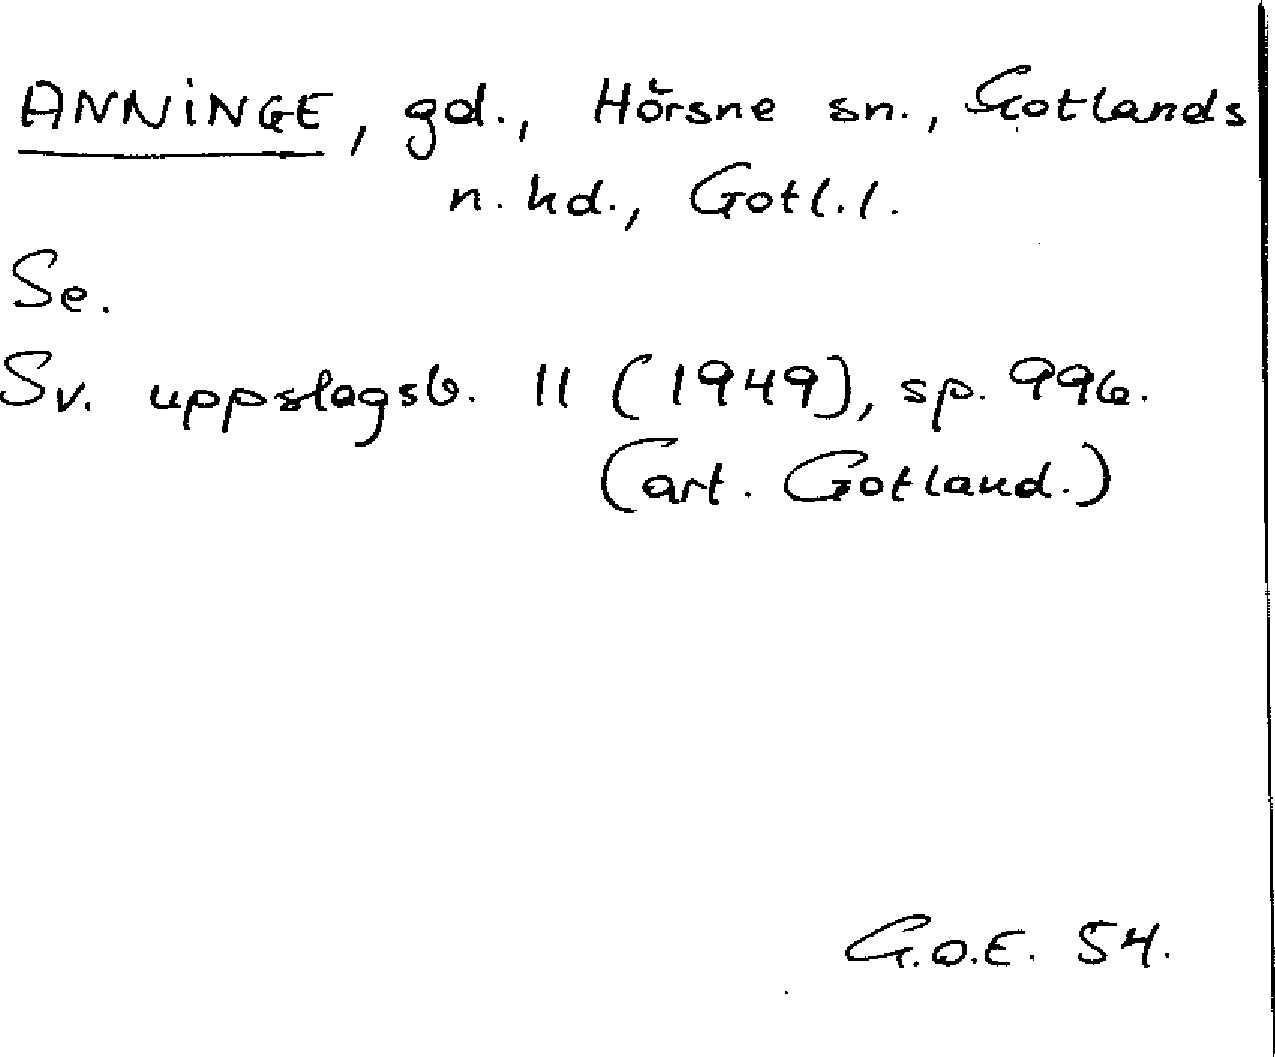 ANNINGE, gd., Hörsne sn., Gotlands
n. hd., Gotl.l.
Se.
Sv. uppslagsb. 11 (1949), sp. 996.
(art. Gotland.)
G.O.E. 54.